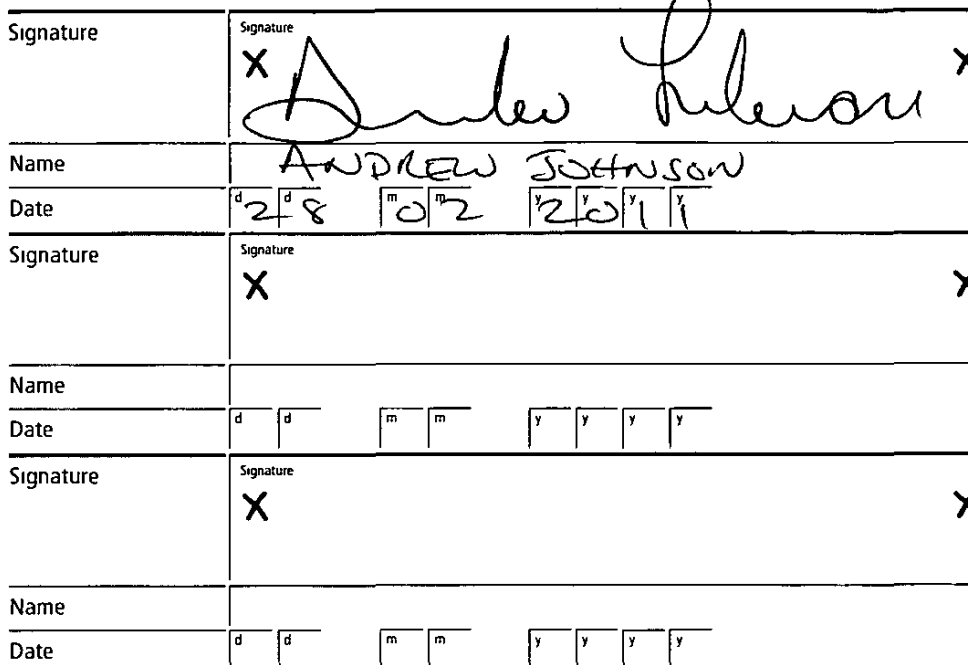 Signature Signature
X X
Name ANDREW JOHNSON
Date d2 d8 m0 m2 y2 y0 y1 y1
Signature Signature
X X
Name
Date d d m m y y y y
Signature Signature
X X
Name
Date d d m m y y y y